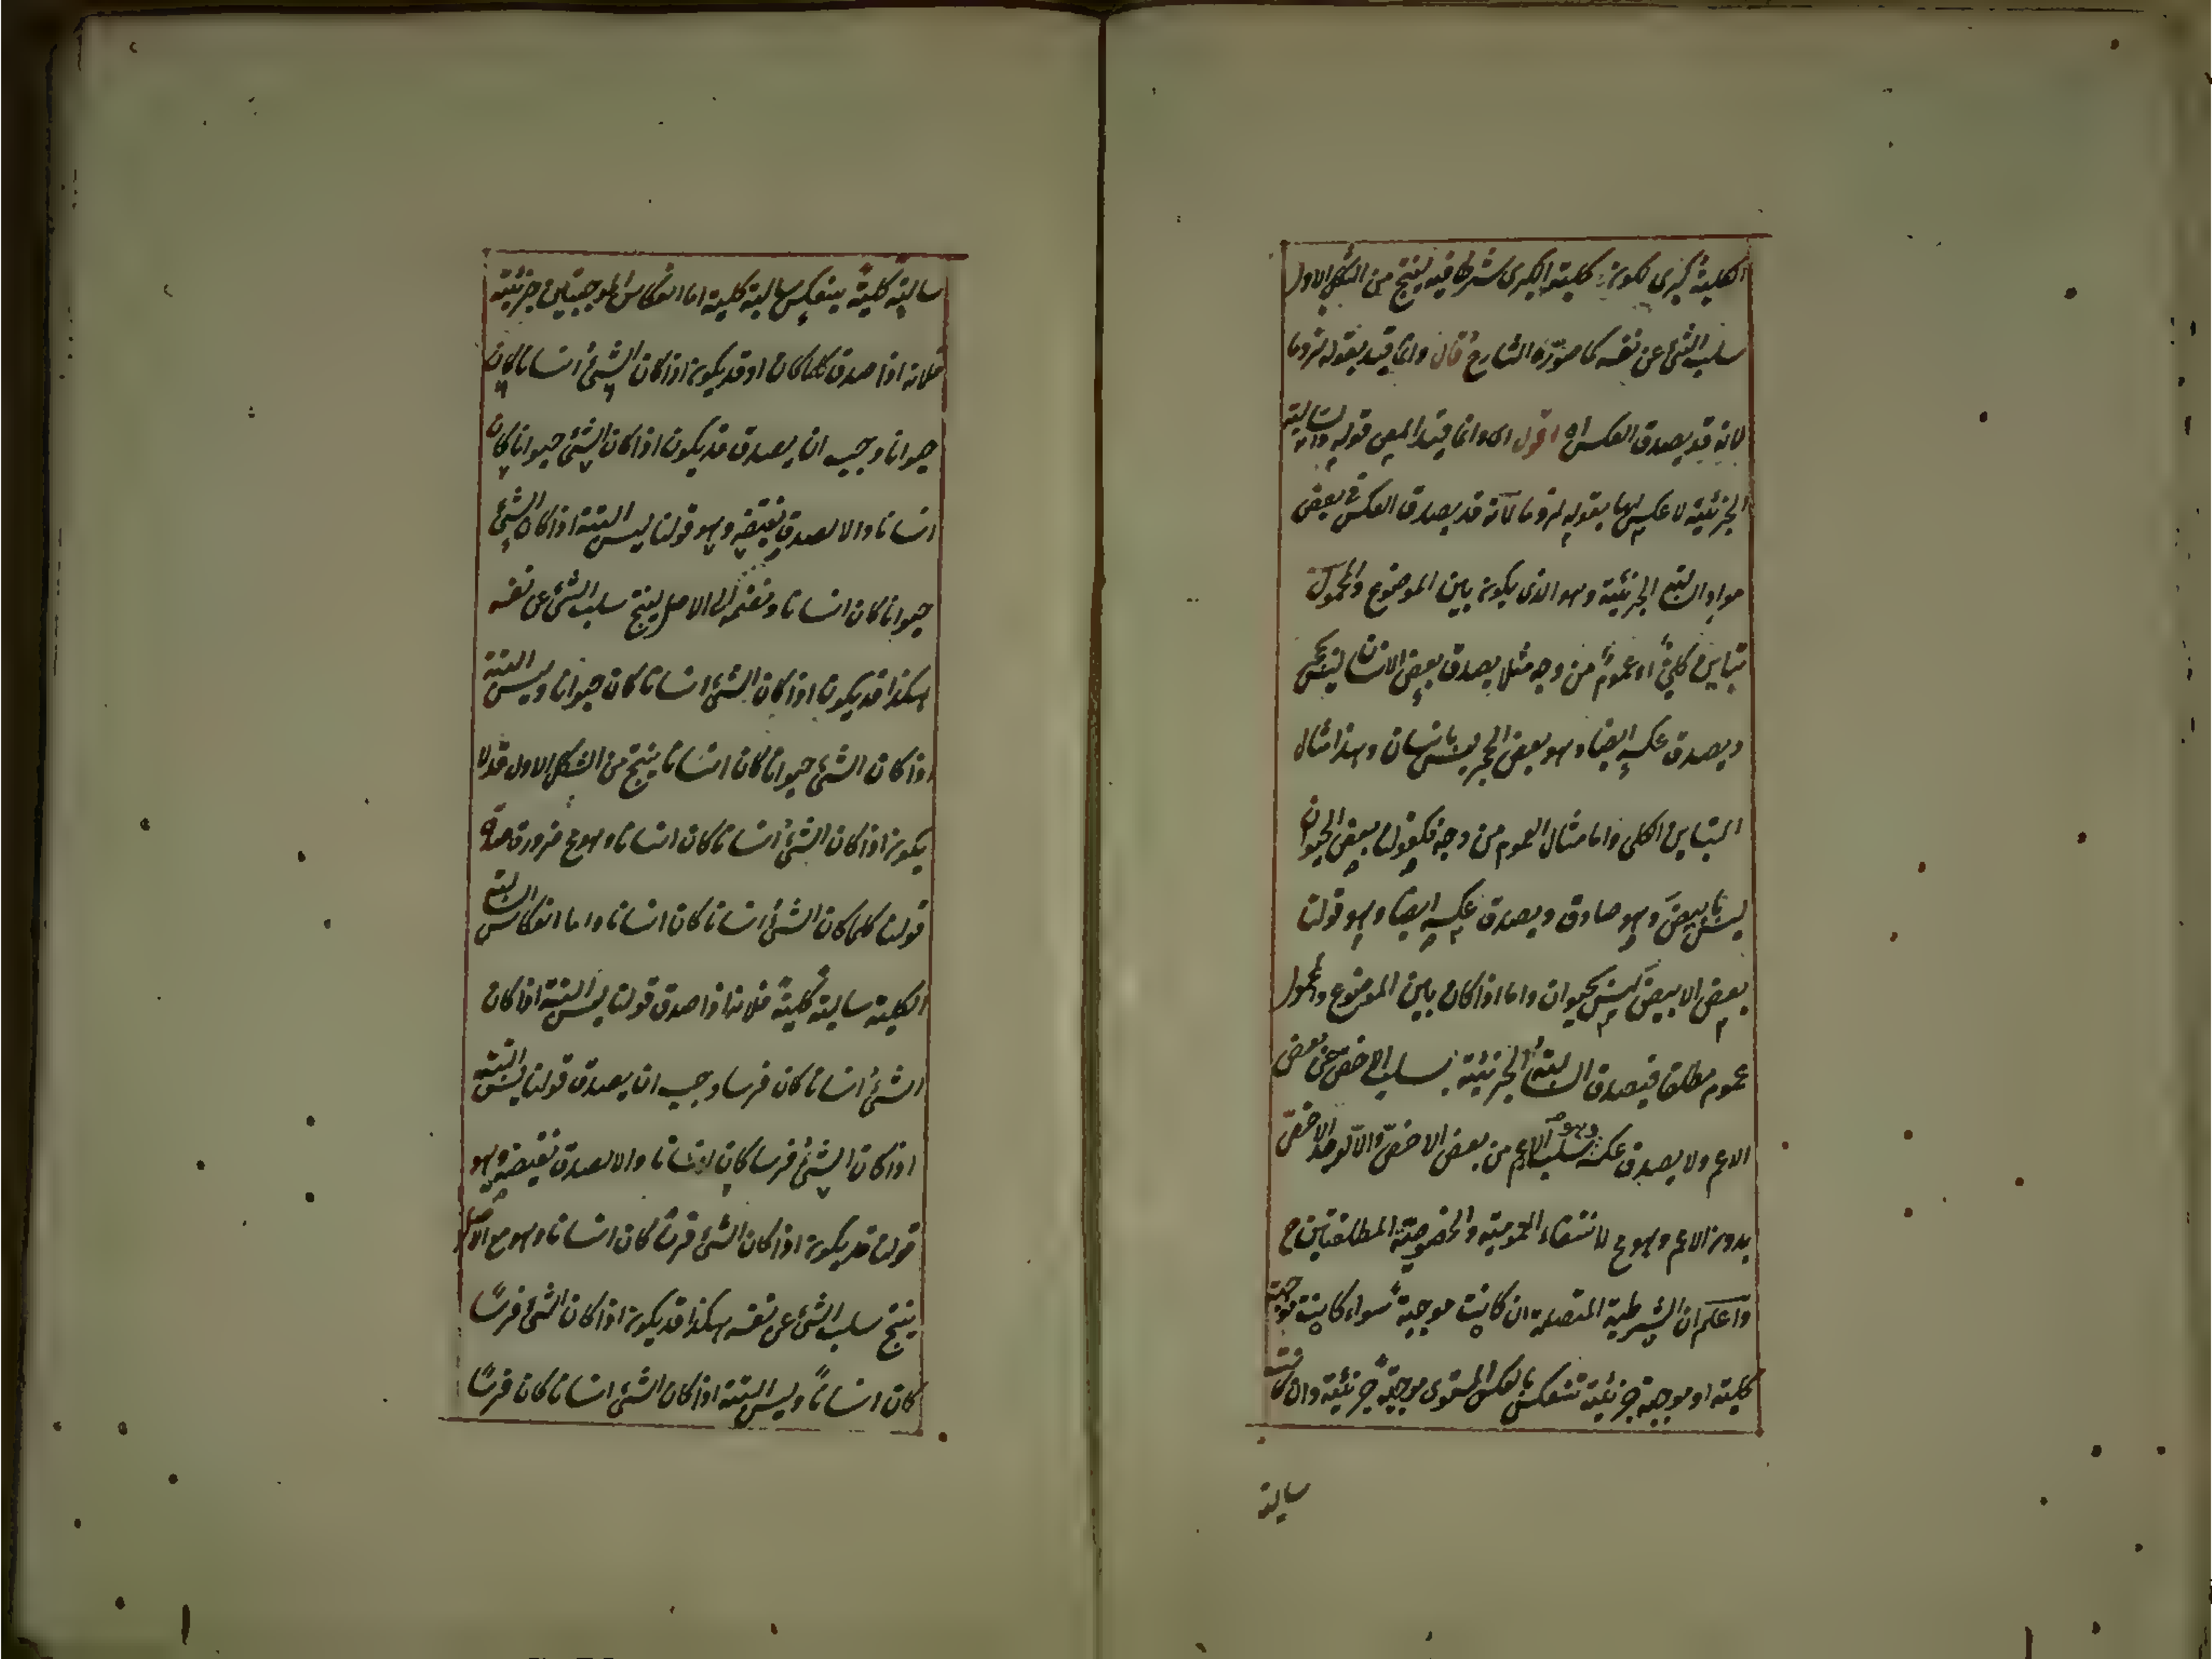 الكلية كبرى لكون كلية الكبرى شرطا فيه لينتج من الشكل الاول
سلب الشئ عن نفسه كما صوّره الشارح قال وانما قيد بقوله لزوما
لانه قد يصدق العكس اه اقول اى وانما قيد المص قوله والسالبة
الجزئية لا عكس لها بقوله لزوما لانّه قد يصدق العكس فى بعض
مواد السالبة الجزئية وهو الذى يكون بين الموضوع والمحمول
تباين كلىّ او عموم من وجه مثلا يصدق بعض الانسان ليس بحجر
ويصدق عكسه ايضا وهو بعض الحجر ليس بانسان وهذا مثال
التباين الكلى واما مثال العموم من وجه فكقولنا بعض الحيوان
ليس بابيض وهو صادق ويصدق عكسه ايضا وهو قولنا
بعض الابيض ليس بحيوان واما اذا كان بين الموضوع والمحمول
عموم مطلقا فيصدق السالبة الجزئية بسلب الاخص عن بعض
الاعم ولا يصدق عكسه وهو سلب الاعم من بعض الاخصّ والاّ لوجد الاخصّ
بدون الاعم وهو مح لانتفاء العمومية والخصوصيّة المطلقتين ح
واعلم ان الشرطية المتصلة ان كانت موجبة سواء كانت موجبة
كلية او موجبة جزئية تنعكس بالعكس المستوى موجبة جزئية وان كانت
سالبة
سالبة كلية ينعكس سالبة كلية اما انعكاس الموجبتين جزئية
فلانه اذا صدق كلما كان او قد يكون اذا كان الشئ انسانا كان
حيوانا وجب ان يصدق قد يكون اذا كان الشئ حيوانا كان
انسانا والا لصدق نقيضه وهو قولنا ليس البتة اذا كان الشئ
حيوانا كان انسانا ونضمه الى الاصل لينتج سلب الشئ عن نفسه
هكذا قد يكون اذا كان الشئ انسانا كان حيوانا وليس البتة
اذا كان الشئ حيوانا كان انسانا ينتج من الشكل الاول قد لا
يكون اذا كان الشئ انسانا كان انسانا وهو مح ضرورة صدق
قولنا كلما كان الشئ انسانا كان انسانا واما انعكاس السالبة
الكلية سالبة كلية فلانه اذا صدق قولنا ليس البتة اذا كان
الشئ انسانا كان فرسا وجب ان يصدق قولنا ليس البتة
اذا كان الشئ فرسا كان انسانا والا لصدق نقيضه وهو
قولنا قد يكون اذا كان الشئ فرسا كان انسانا وهو مع الاصل
ينتج سلب الشئ عن نفسه هكذا قد يكون اذا كان الشئ فرسًا
كان انسانًا وليس البتة اذا كان الشئ انسانا كان فرسًا